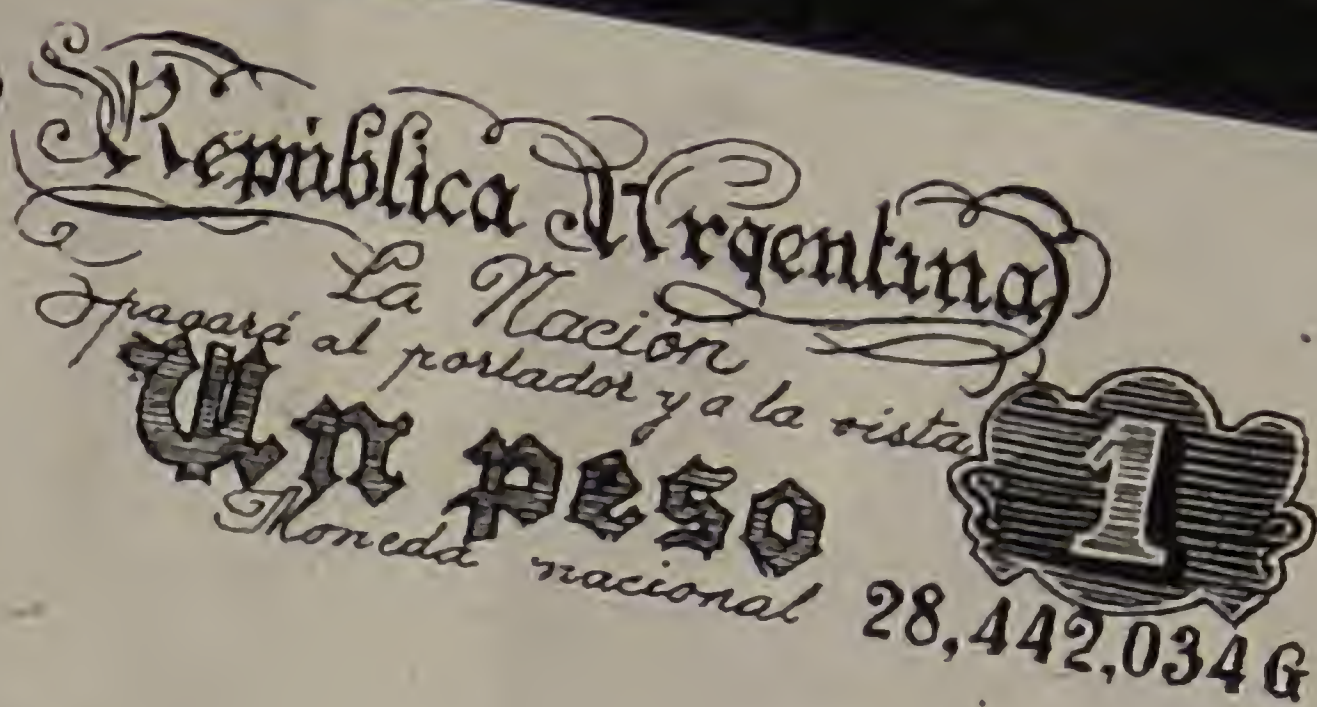 República Argentina
La Nación
pagará al portador y a la vista
Un peso
1
Moneda nacional
28,442,034 G